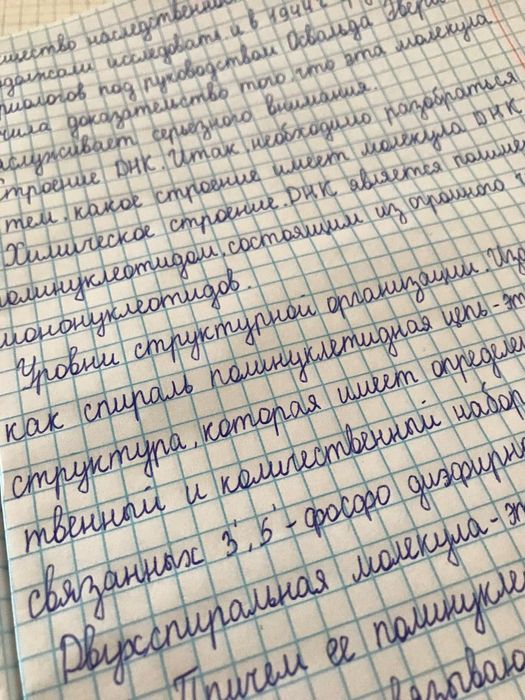 наследственно
должали исследовать и в 1944 г
риологов под руководством Освальда Эвери
чила доказательство того, что эта молекула
аслуживает серьезного внимания.
строение ДНК. Итак, необходимо разобраться
тем, какое строение имеет молекула ДНК.
Химическое строение. ДНК является полиме
полинуклеотидом, состоящим из огромного ч
мононуклеотидов.
Уровни структурной организации. Изо
как спираль полинуклетидная цепь-э
структура, которая имеет определе
твенный и количественный набор
связанных 3', 5'-фосфо диэфирн
Двухспиральная молекула-э
Причем ее полинукле